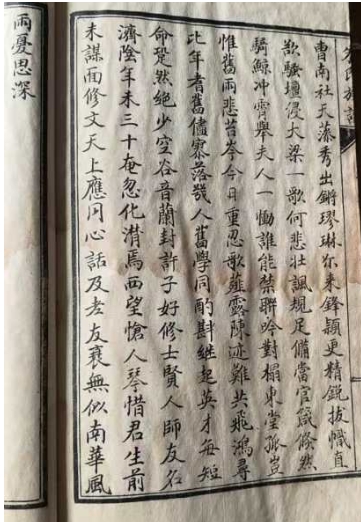 曹南社天藻秀出鏘璆琳尔来鋒穎更精鋭拔幟直
歎騷壇侵大梁一歌何悲壯諷規足備當官箴倏然
騎鯨冲霄舉夫人一慟誰能禁聯吟對榻東堂孤豈
惟舊雨悲苔岑今日重忍歌薤露陳迹難共飛鴻尋
比年耆舊儘寥落幾人舊學同酌斟継起英才每短
命跫然絶少空谷音蘭封許子好修士賢人師友名
濟陰年未三十奄忽化潸焉西望愴人琴惜君生前
未謀面修文天上應同心話及老友衰無似南華風
雨憂思深